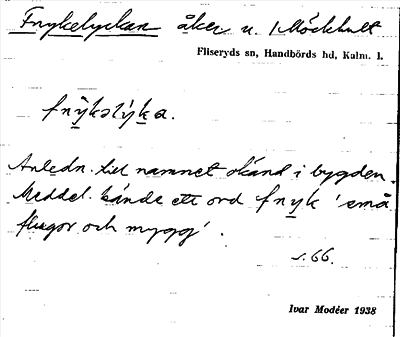 Fnykelyckan åker u. Möckhult
Fliseryds sn, Handbörds hd, Kalm. l.
fnỳkəlyka.
Anledn. till namnet okänd i bygden.
Meddel. kände ett ord fnyk 'små
flugor och mygg'.
s. 66.
Ivar Modéer 1938